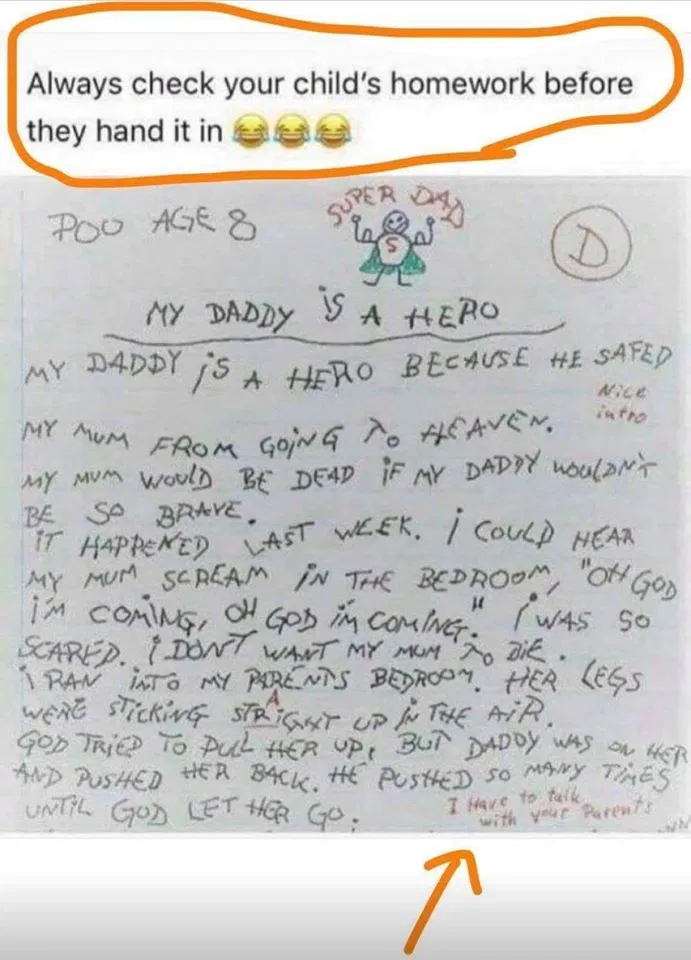 Always check your child's homework before
they hand it in 😂😂😂
SUPER DAD
POO AGE 8
S
D
MY DADDY iS A HERO
MY DADDY iS A HERO BECAUSE HE SAFED
Nice
intro
MY MUM FROM GOiNG TO HEAVEN.
MY MUM WOULD BE DEAD iF MY DADDY WOULDN'T
BE SO BRAVE.
iT HAPPENED LAST WEEK. i COULD HEAR
MY MUM SCREAM iN THE BEDROOM, "OH GOD
i'M COMiNG, OH GOD iM COMiNG." i WAS SO
SCARED. i DON'T WANT MY MUM TO DiE.
i RAN iNTO MY PARENTS BEDROOM. HER LEGS
WERE STiCKiNG STRAiGHT UP iN THE AiR.
GOD TRiED TO PULL HER UP, BUT DADDY WAS ON HER
AND PUSHED HER BACK. HE PUSHED SO MANY TiMES
UNTiL GOD LET HER GO.
I Have to talk
with your Parents